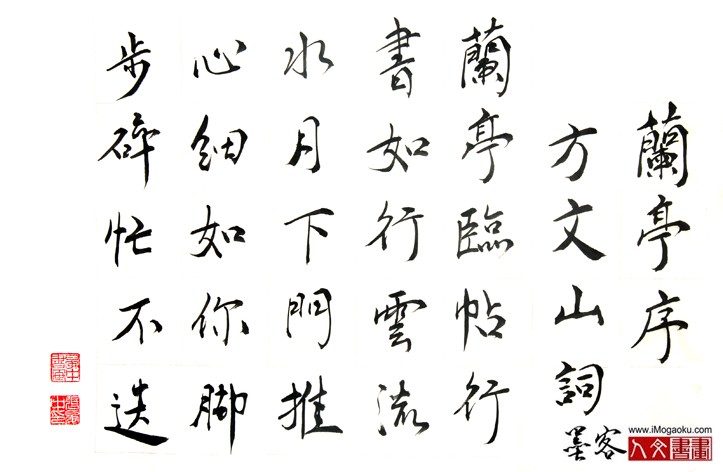 蘭亭序
方文山詞
蘭亭臨帖行
書如行雲流
水月下門推
心細如你脚
步碎忙不迭
墨客
www.iMogaoku.com
人文書畫